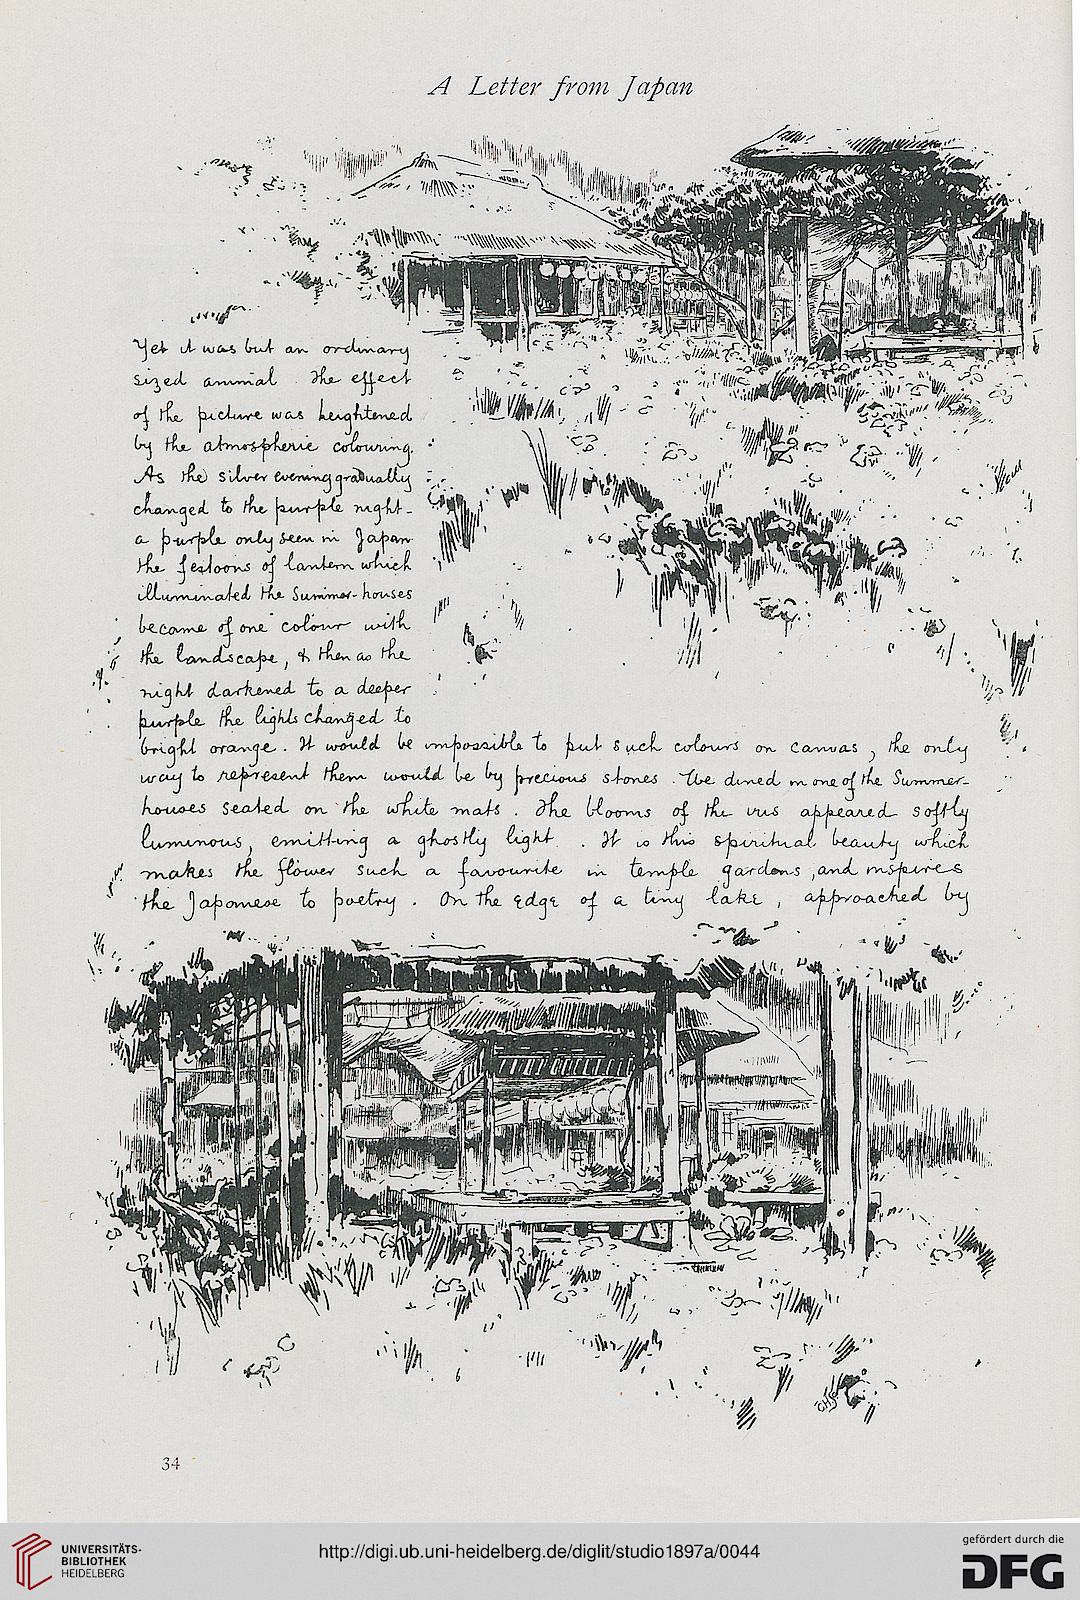 A Letter from Japan
Yet it was but an ordinary
sized animal. The effect
of the picture was heightened
by the atmospheric colouring.
As the silver evening gradually
changed to the purple night -
a purple only seen in Japan
the festoons of lantern which
illuminated the summer-houses
became of one colour with
the landscape, & then as the
night darkened to a deeper
purple the lights changed to
bright orange. It would be impossible to put such colours on canvas, the only
way to represent them would be by precious stones. We dined in one of the Summer-
houses seated on the white mats. The blooms of the iris appeared softly
luminous, emitting a ghostly light. It is this spiritual beauty which
makes the flower such a favourite in temple gardens, and inspires
the Japanese to poetry. On the edge of a tiny lake, approached by
34
UNIVERSITÄTS-
BIBLIOTHEK
HEIDELBERG
http://digi.ub.uni-heidelberg.de/diglit/studio1897a/0044
gefördert durch die
DFG